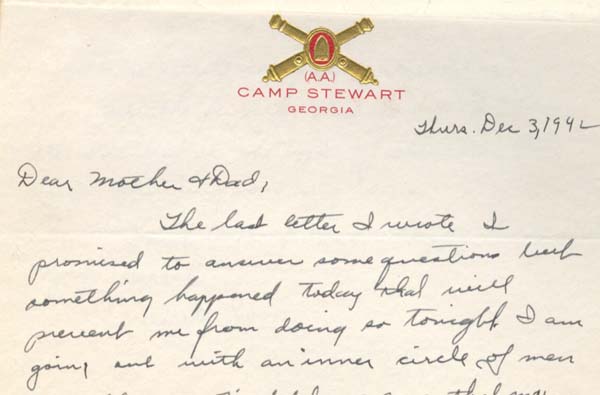 (A.A.)
CAMP STEWART
GEORGIA
Thurs. Dec 3, 1942
Dear Mother & Dad,
The last letter I wrote I
promised to answer some questions but
something happened today that will
prevent me from doing so tonight. I am
going out with an inner circle of men